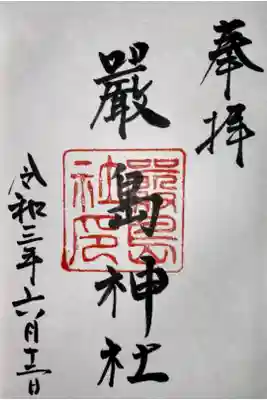 奉拝
嚴島神社
嚴島社印
令和三年六月十三日